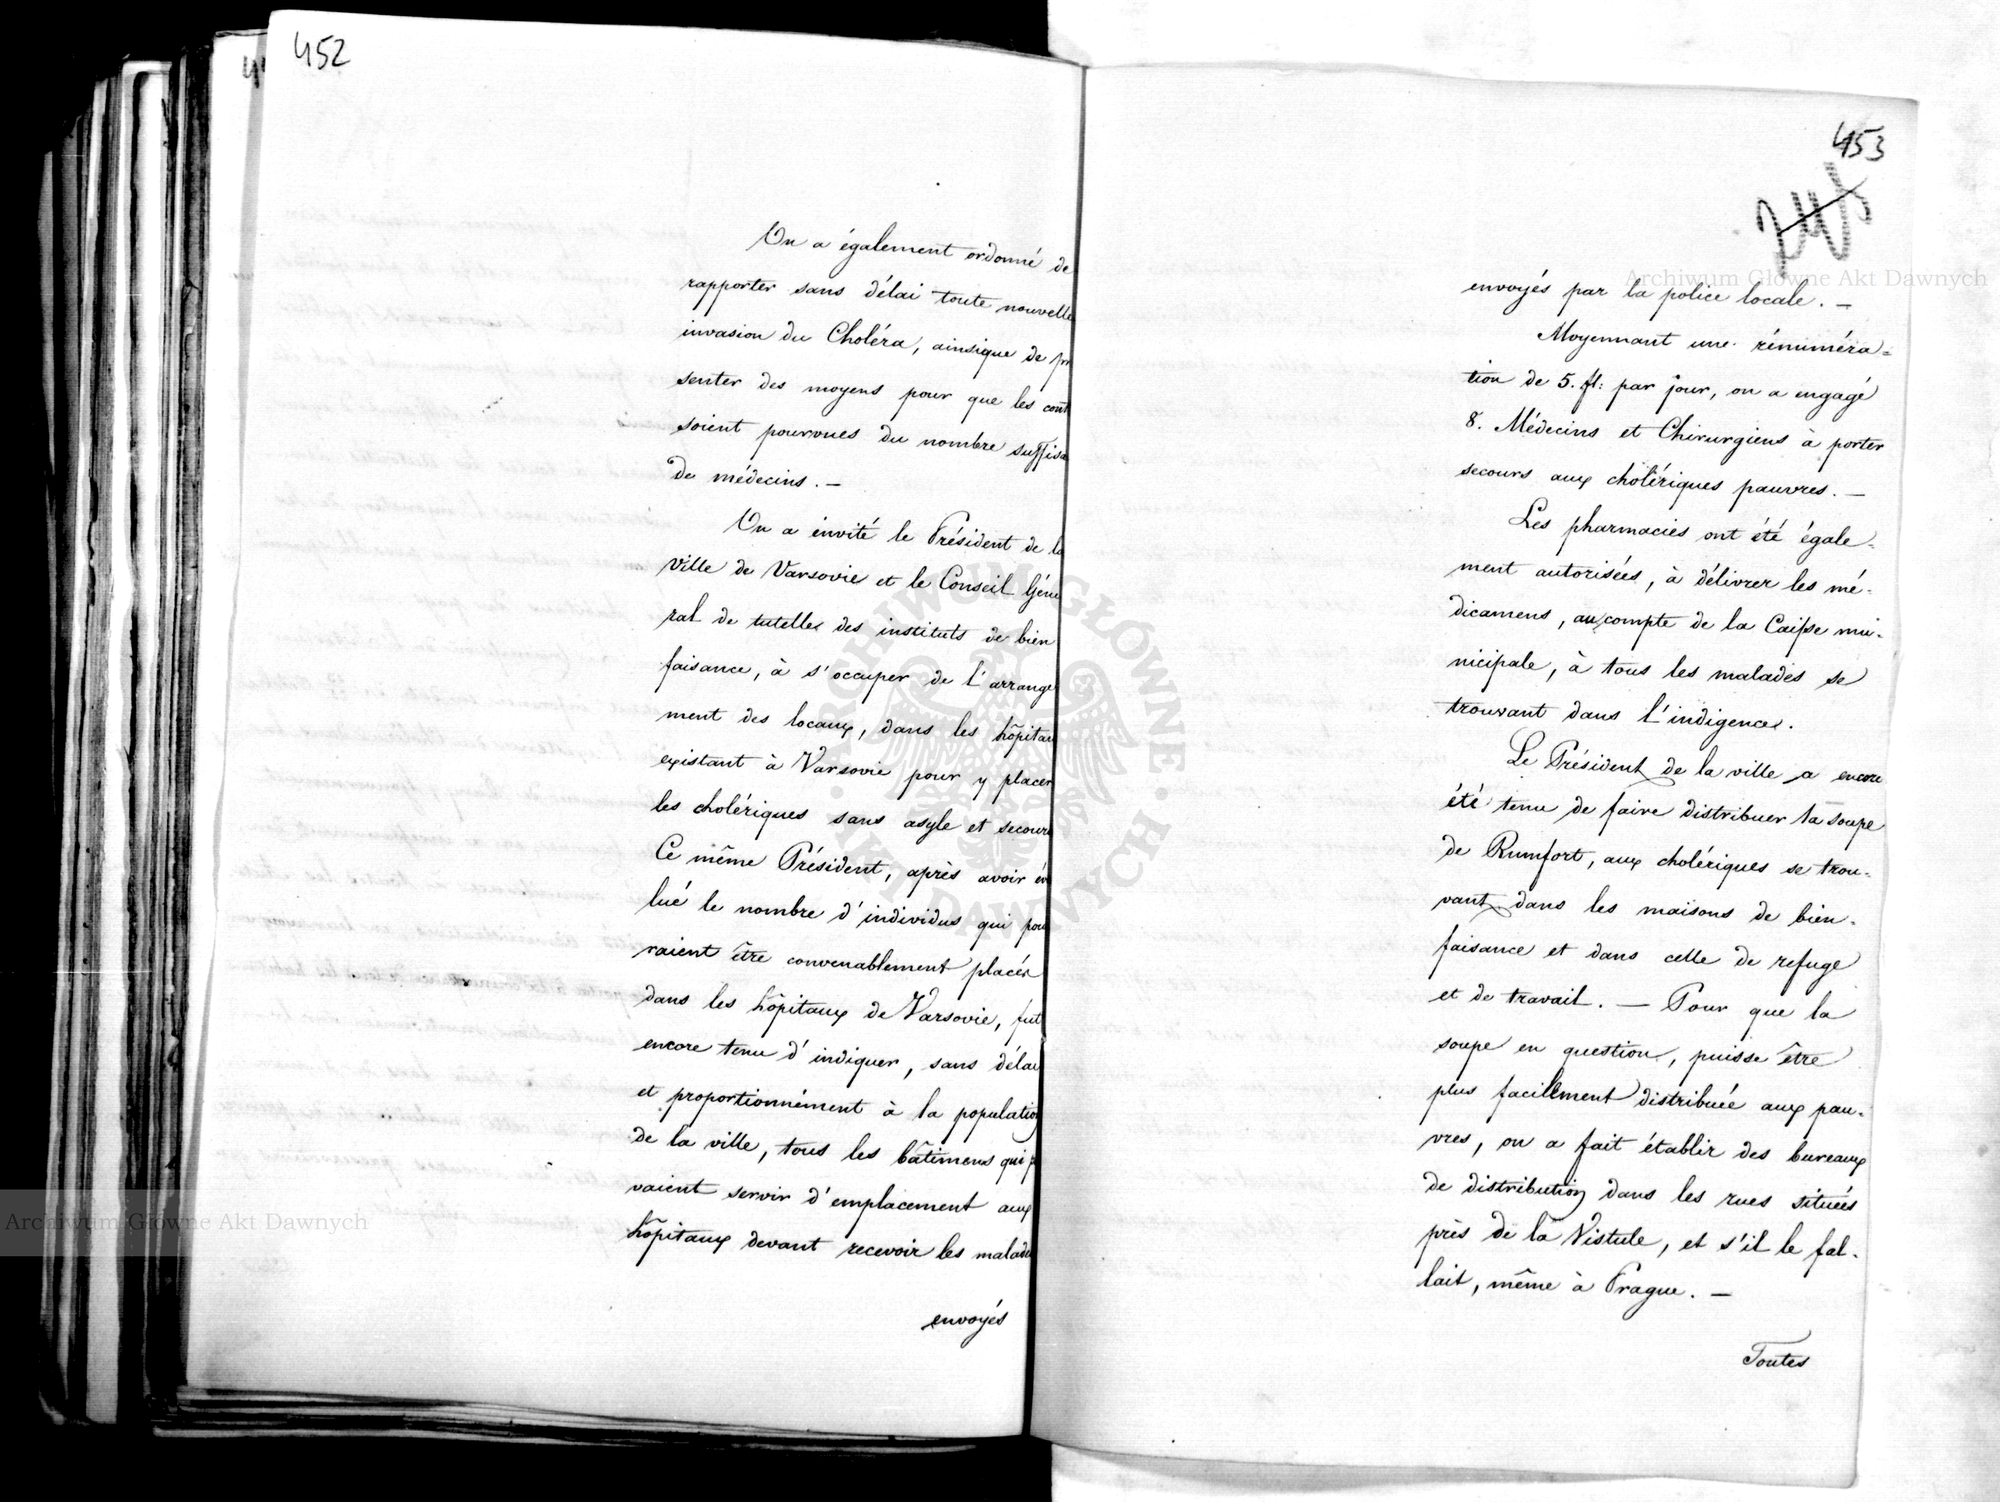 452
On a également ordonné de
rapporter sans délai toute nouvelle
invasion du Choléra, ainsique de pr
senter des moyens pour que les cont
soient pourvues du nombre suffisa
de médecins. —
On a invité le Président de la
ville de Varsovie et le Conseil Géné
ral de tutelle des instituts de bien
faisance, à s'occuper de l'arrange
ment des locaux, dans les hôpitau
existant à Varsovie pour y placer
les cholériques sans asyle et secours
Ce même Président, après avoir év
lué le nombre d'individus qui pou
raient être convenablement placés
dans les hôpitaux de Varsovie, fut
encore tenu d'indiquer, sans délai
et proportionnément à la population
de la ville, tous les bâtimens qui p
vaient servir d'emplacement aux
hôpitaux devant recevoir les malade
envoyés
453
envoyés par la police locale. —
Moyennant une réminéra=
tion de 5. fl: par jour, on a engagé
8. Médecins et Chirurgiens à porter
secours aux cholériques pauvres. —
Les pharmacies ont été égale-
ment autorisées, à délivrer les mé-
dicamens, au compte de la Caisse mu-
nicipale, à tous les malades se
trouvant dans l'indigence.
Le Président de la ville a encore
été tenu de faire distribuer la soupe
de Rumfort, aux cholériques se trou-
vant dans les maisons de bien-
faisance et dans celle de refuge
et de travail. — Pour que la
soupe en question, puisse être
plus facilement distribuée aux pau-
vres, on a fait établir des bureaux
de distribution dans les rues situées
près de la Vistule, et s'il le fal-
lait, même à Prague. —
Toutes
Archiwum Główne Akt Dawnych
Archiwum Główne Akt Dawnych
ARCHIWUM GŁÓWNE AKT DAWNYCH